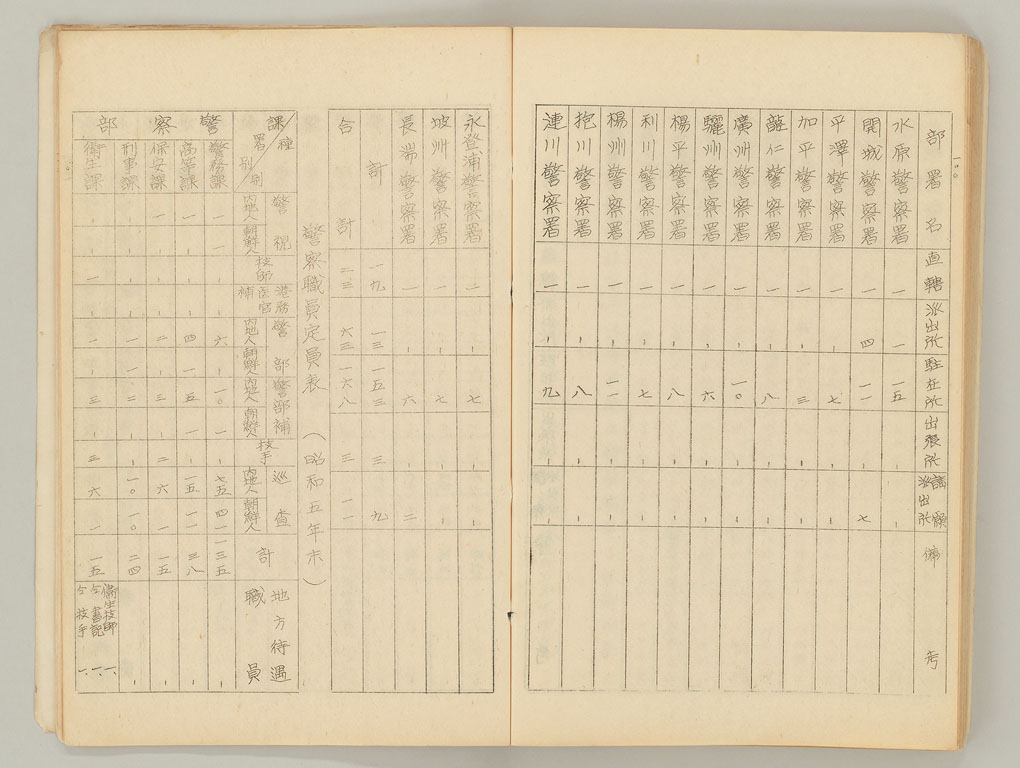 一〇〇
部署名 直轄 派出所 駐在所 出張所 請願派出所 備考
水原警察署 一 一 一五 、 、
開城警察署 一 四 一一 、 七
平澤警察署 一 、 七 、 、
加平警察署 一 、 三 、 、
龍仁警察署 一 、 八 、 、
廣州警察署 一 、 一〇 、 、
驪州警察署 一 、 六 、 、
楊平警察署 一 、 八 、 、
利川警察署 一 、 七 、 、
楊州警察署 一 、 一一 、 、
抱川警察署 一 、 八 、 、
連川警察署 一 、 九 、 、
永登浦警察署 二 、 七 、 、
坡州警察署 一 、 七 、 、
長湍警察署 一 、 六 、 二
計 一九 一三 一五三 三 九
合計 二三 六三 一六八 三 一一
警察職員定員表（昭和五年末）
種別 警視 技師 港務医官補 警部 警部補 技手 巡査 計 地方待遇職員
課署別 内地人 朝鮮人 内地人 朝鮮人 内地人 朝鮮人 内地人 朝鮮人
警察部
警務課 一 一 、 、 六 、 一〇 一 、 七五 四一 一三五 、
高等課 一 、 、 、 四 一 五 一 、 一五 一一 三八 、
保安課 一 、 、 、 二 一 三 、 二 六 一 一五 、
刑事課 、 、 、 、 一 一 二 、 、 一〇 一〇 二四 、
衛生課 、 、 一 、 一 、 三 、 三 六 一 一五
衛生技師 一、
仝書記 一、
仝技手 一、